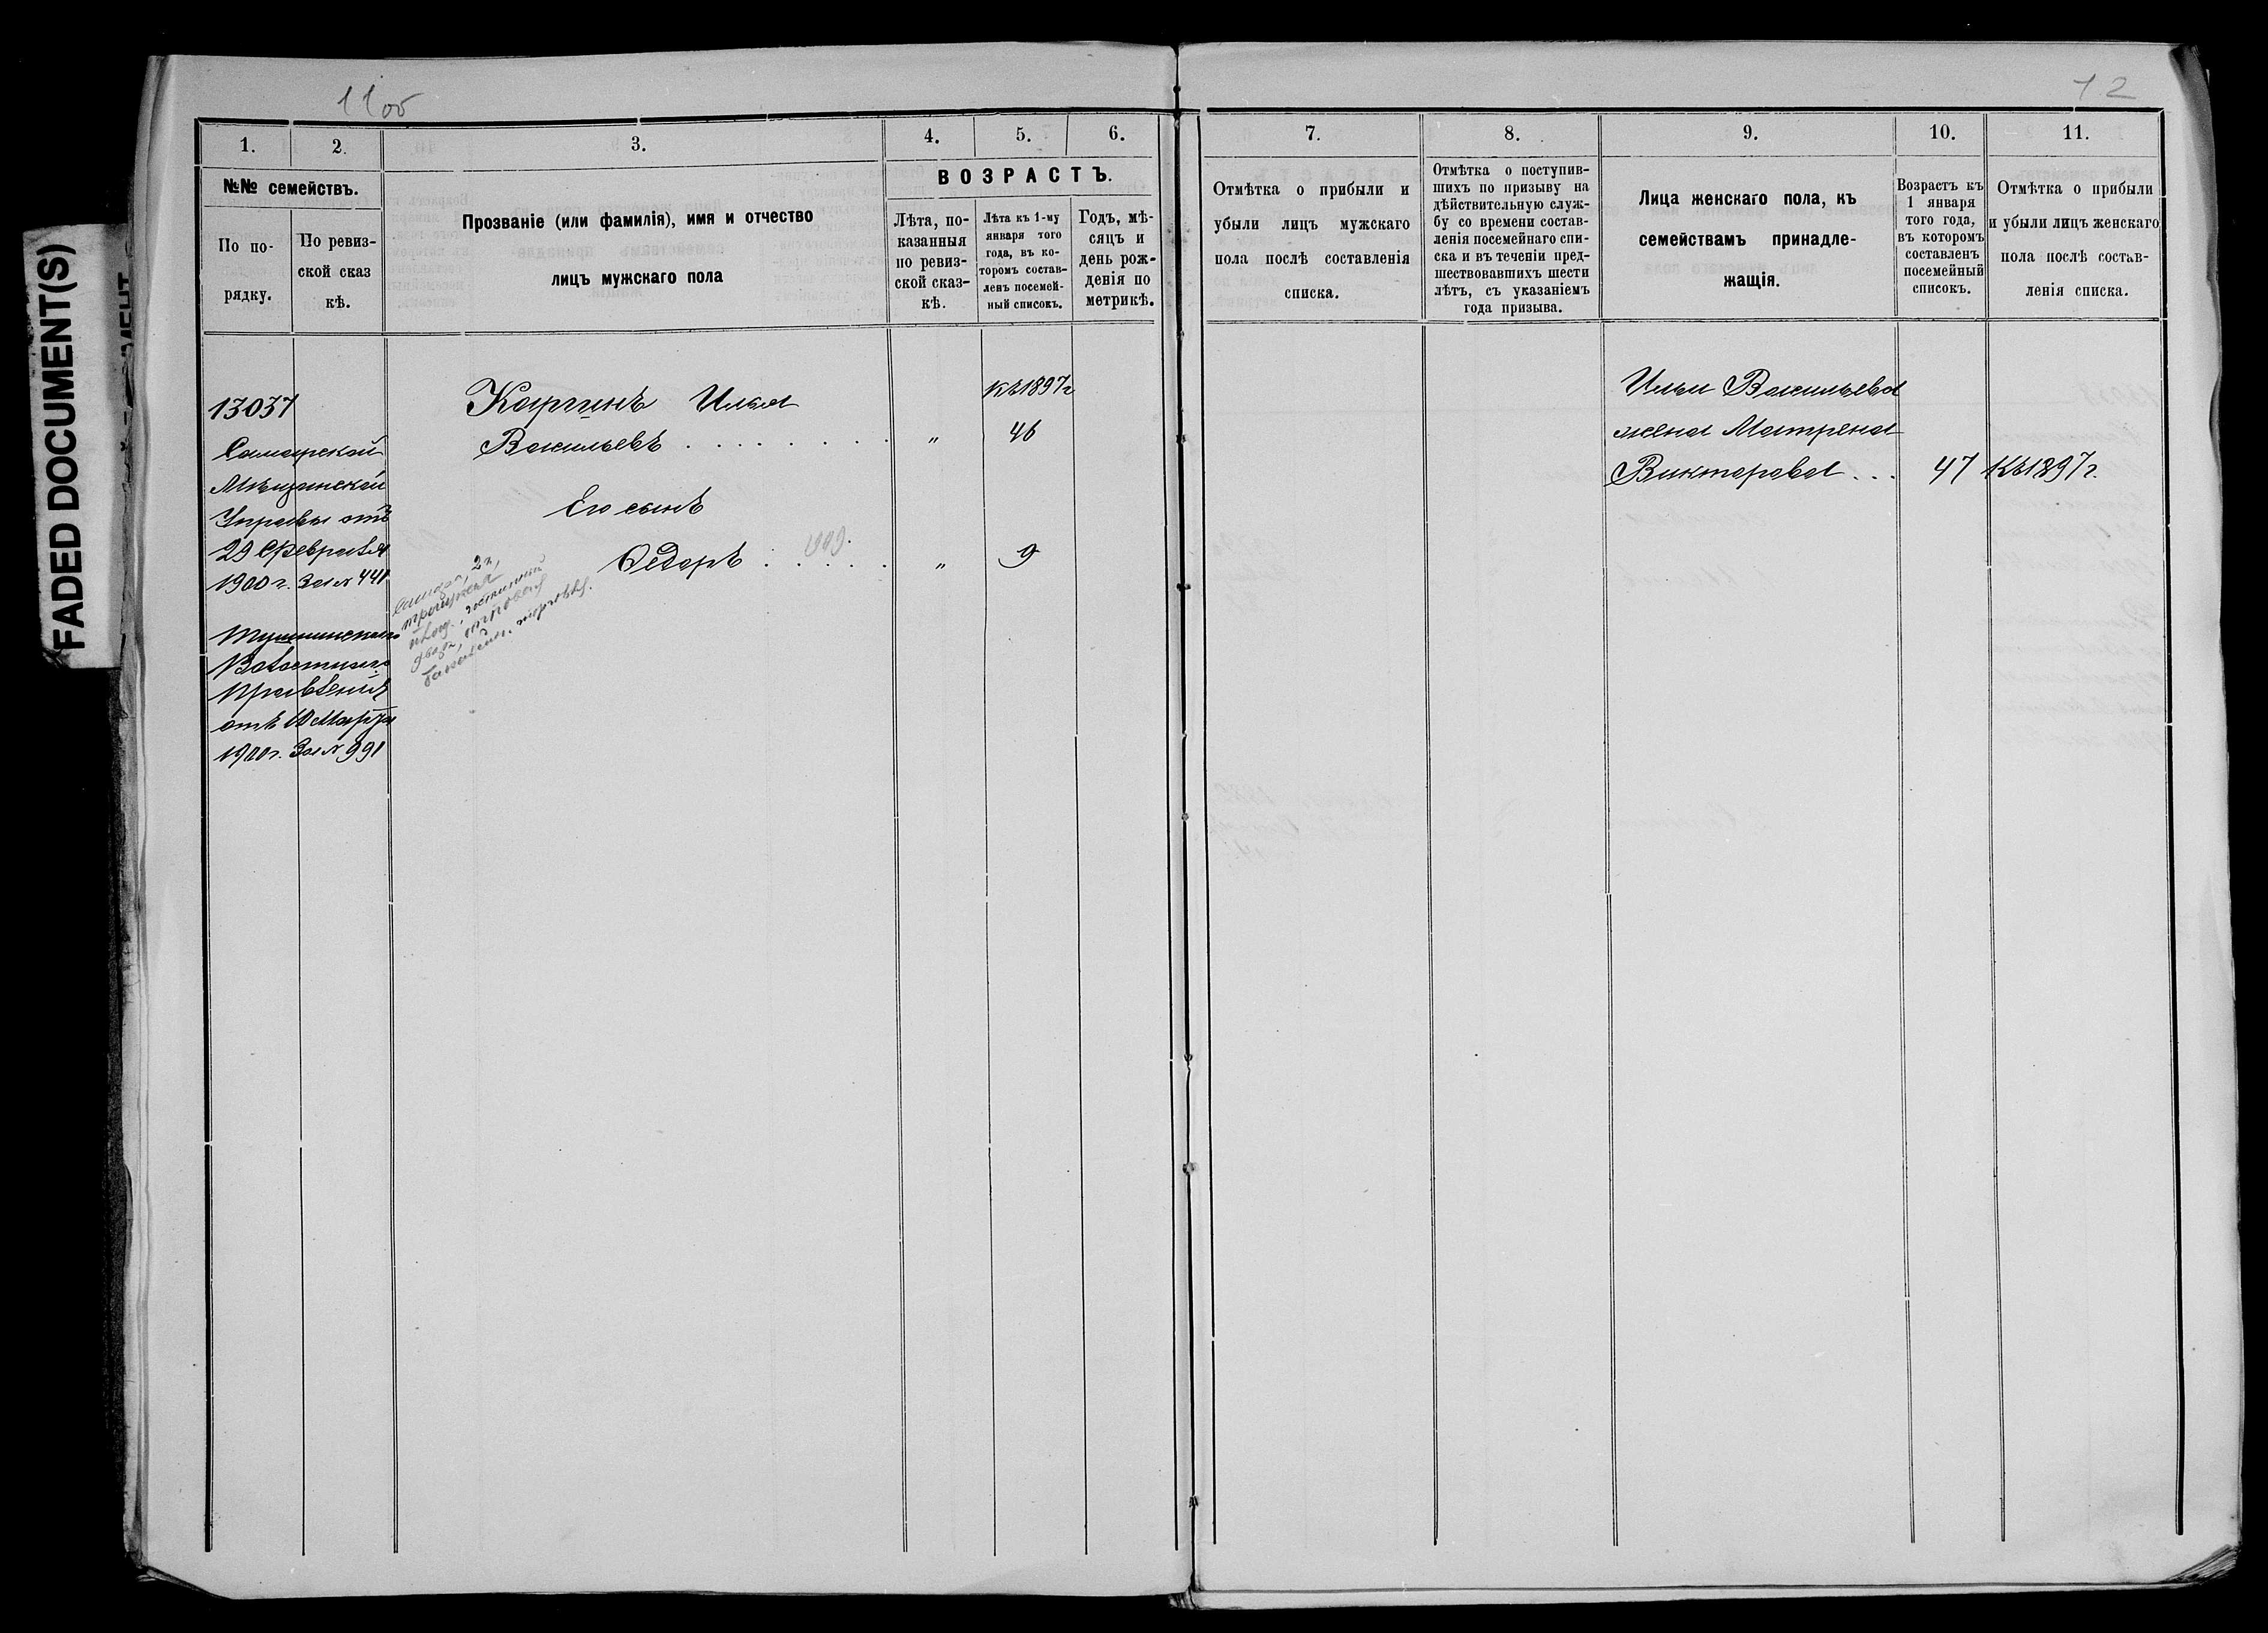 FADED DOCUMENT(S)
11об
12
1.
2.
3.
4.
5.
6.
7.
8.
9.
10.
11.
№№ семействъ.
По по-
рядку.
По ревиз-
ской сказ
кѣ.
Прозваніе (или фамилія), имя и отчество
лицъ мужскаго пола
ВОЗРАСТЪ.
Лѣта, по-
казанныя
по ревиз-
ской сказ-
кѣ.
Лѣта къ 1-му
января того
года, въ ко-
торомъ состав-
ленъ посемей-
ный списокъ.
Годъ, мѣ-
сяцъ и
день рож-
денія по
метрикѣ.
Отмѣтка о прибыли и
убыли лицъ мужскаго
пола послѣ составленія
списка.
Отмѣтка о поступив-
шихъ по призыву на
дѣйствительную служ-
бу со времени состав-
ленія посемейнаго спи-
ска и въ теченіи пред-
шествовавшихъ шести
лѣтъ, съ указаніемъ
года призыва.
Лица женскаго пола, къ
семействамъ принадле-
жащія.
Возрастъ къ
1 января
того года,
въ которомъ
составленъ
посемейный
списокъ.
Отмѣтка о прибыли
и убыли лицъ женскаго
пола послѣ состав-
ленія списка.
13037
Самарской
Мѣщанской
Управы отъ
29 Февраля
1900 г. За № 441
Волостнаго
Правленія
отъ 10 Марта
1900 г. За № 991
Каргинъ Илья
Васильевъ . . . . . . . "
къ 1897 г
46
Его сынъ
Ѳедоръ . . . . . "
1909.
9
Ильи Васильева
жена Матрена
Викторова . . . 47 Къ 1897 г.